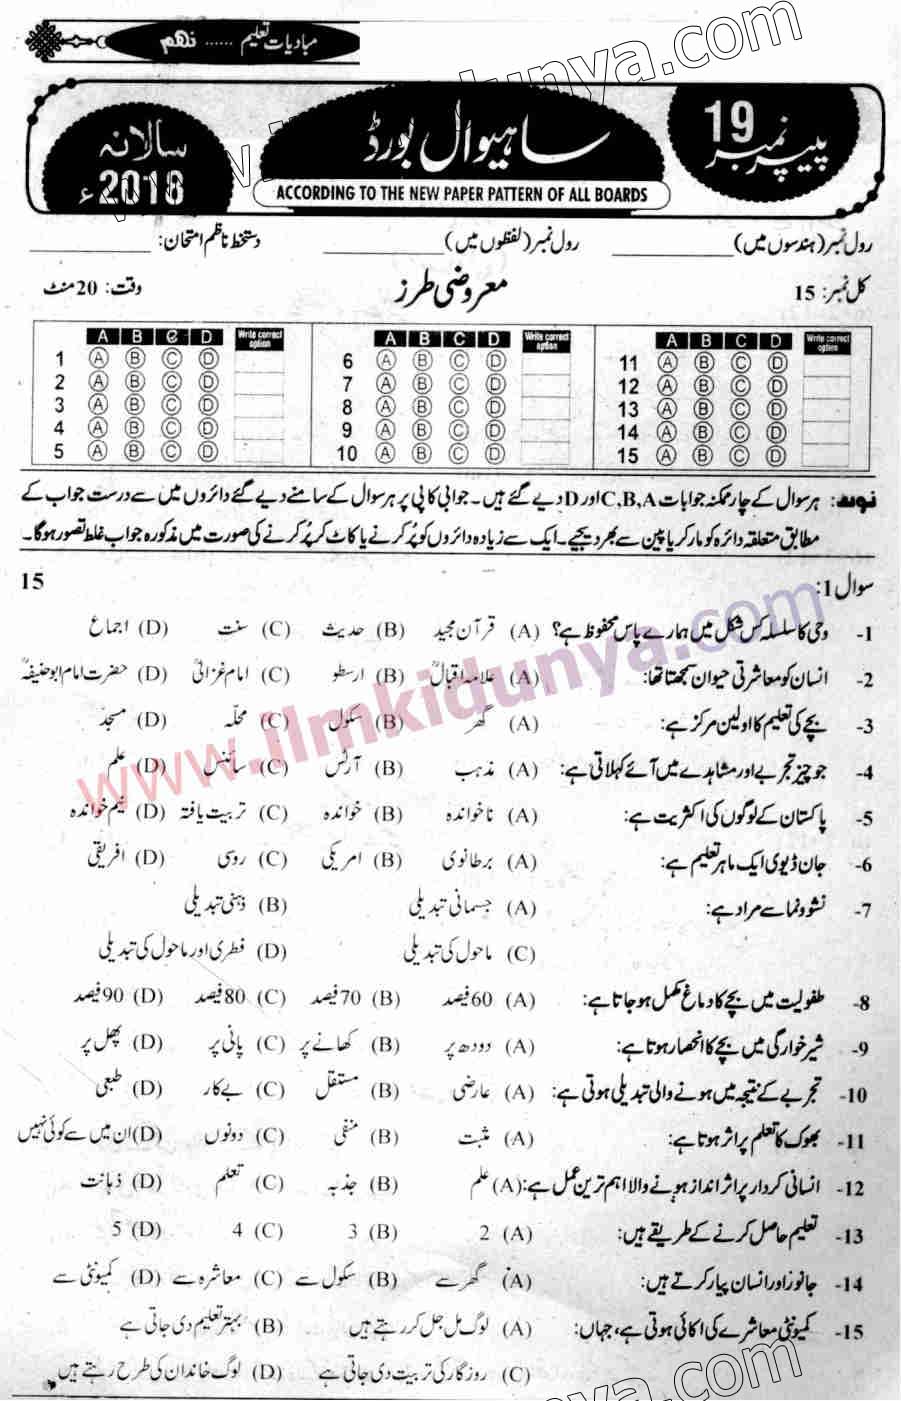 مبادیات تعلیم ...... نہم
پیپر نمبر 19
ساہیوال بورڈ
سالانہ 2018ء
ACCORDING TO THE NEW PAPER PATTERN OF ALL BOARDS
رول نمبر (ہندسوں میں) ____________ رول نمبر (لفظوں میں) ____________ دستخط ناظم امتحان: ____________
کل نمبر: 15 معروضی طرز وقت: 20 منٹ
A B C D Write correct option A B C D Write correct option A B C D Write correct option
1 A B C D 6 A B C D 11 A B C D
2 A B C D 7 A B C D 12 A B C D
3 A B C D 8 A B C D 13 A B C D
4 A B C D 9 A B C D 14 A B C D
5 A B C D 10 A B C D 15 A B C D
نوٹ: ہر سوال کے چار ممکنہ جوابات C,B,A اور D دیے گئے ہیں۔ جوابی کاپی پر ہر سوال کے سامنے دیے گئے دائروں میں سے درست جواب کے
مطابق متعلقہ دائرہ کو مارکر یا پین سے بھر دیجیے۔ ایک سے زیادہ دائروں کو پُر کرنے یا کاٹ کر پُر کرنے کی صورت میں مذکورہ جواب غلط تصور ہو گا۔
سوال 1: 15
1- وحی کا سلسلہ کس شکل میں ہمارے پاس محفوظ ہے؟ (A) قرآن مجید (B) حدیث (C) سنت (D) اجماع
2- انسان کو معاشرتی حیوان سمجھتا تھا: (A) علامہ اقبالؒ (B) ارسطو (C) امام غزالیؒ (D) حضرت امام ابو حنیفہؒ
3- بچے کی تعلیم کا اولین مرکز ہے: (A) گھر (B) سکول (C) محلّہ (D) مسجد
4- جو چیز تجربے اور مشاہدے میں آئے کہلاتی ہے: (A) مذہب (B) آرٹس (C) سائنس (D) علم
5- پاکستان کے لوگوں کی اکثریت ہے: (A) ناخواندہ (B) خواندہ (C) تربیت یافتہ (D) نیم خواندہ
6- جان ڈیوی ایک ماہر تعلیم ہے: (A) برطانوی (B) امریکی (C) روسی (D) افریقی
7- نشوونما سے مراد ہے: (A) جسمانی تبدیلی (B) ذہنی تبدیلی
(C) ماحول کی تبدیلی (D) فطری اور ماحول کی تبدیلی
8- طفولیت میں بچے کا دماغ مکمل ہو جاتا ہے: (A) 60 فیصد (B) 70 فیصد (C) 80 فیصد (D) 90 فیصد
9- شیر خوارگی میں بچے کا انحصار ہوتا ہے: (A) دودھ پر (B) کھانے پر (C) پانی پر (D) پھل پر
10- تجربے کے نتیجہ میں ہونے والی تبدیلی ہوتی ہے: (A) عارضی (B) مستقل (C) بے کار (D) طبعی
11- بھوک کا تعلم پر اثر ہوتا ہے: (A) مثبت (B) منفی (C) دونوں (D) ان میں سے کوئی نہیں
12- انسانی کردار پر اثر انداز ہونے والا اہم ترین عمل ہے: (A) علم (B) جذبہ (C) تعلم (D) ذہانت
13- تعلیم حاصل کرنے کے طریقے ہیں: (A) 2 (B) 3 (C) 4 (D) 5
14- جانور اور انسان پیار کرتے ہیں: (A) گھر سے (B) سکول سے (C) معاشرہ سے (D) کمیونٹی سے
15- کمیونٹی معاشرے کی اکائی ہوتی ہے، جہاں: (A) لوگ مل جل کر رہتے ہیں (B) بہتر تعلیم دی جاتی ہے
(C) روزگار کی تربیت دی جاتی ہے (D) لوگ خاندان کی طرح رہتے ہیں
www.ilmkidunya.com